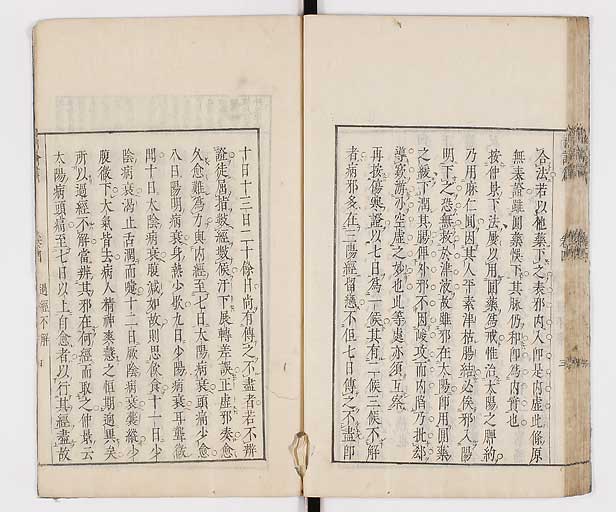 合法若以他藥下之表邪內入即是內虛此條原
無表證雖圓藥悞下其脉仍和即為內實也
按仲景下法屢以用圓藥為戒惟治太陽之脾約
乃用麻仁圓因其人平素津枯腸結必俟邪入陽
明下之恐無救於津液故雖邪在太陽即用圓藥
之緩下潤其腸俾外邪不因峻攻而內陷乃批郤
導窾游刃空虛之妙也此等處亦須互察
再按傷寒證以七日為一候其有二候三候不解
者病邪多在三陽經留戀不但七日傳之不盡即
十日十三日二十餘日尚有傳之不盡者若不辨
證徒屈指數經數候汗下展轉差誤正虛邪湊愈
久愈難為力與內經至七日太陽病衰頭痛少愈
八日陽明病衰身熱少歇九日少陽病衰耳聾微
聞十日太陰病衰腹減如故則思飲食十一日少
陰病衰渴止舌潤而嚏十二日厥陰病衰囊縱少
腹微下大氣皆去病人精神爽慧之恒期適異矣
所以過經不解當辨其邪在何經而取之仲景云
太陽病頭痛至七日以上自愈者以行其經盡故
過經不解